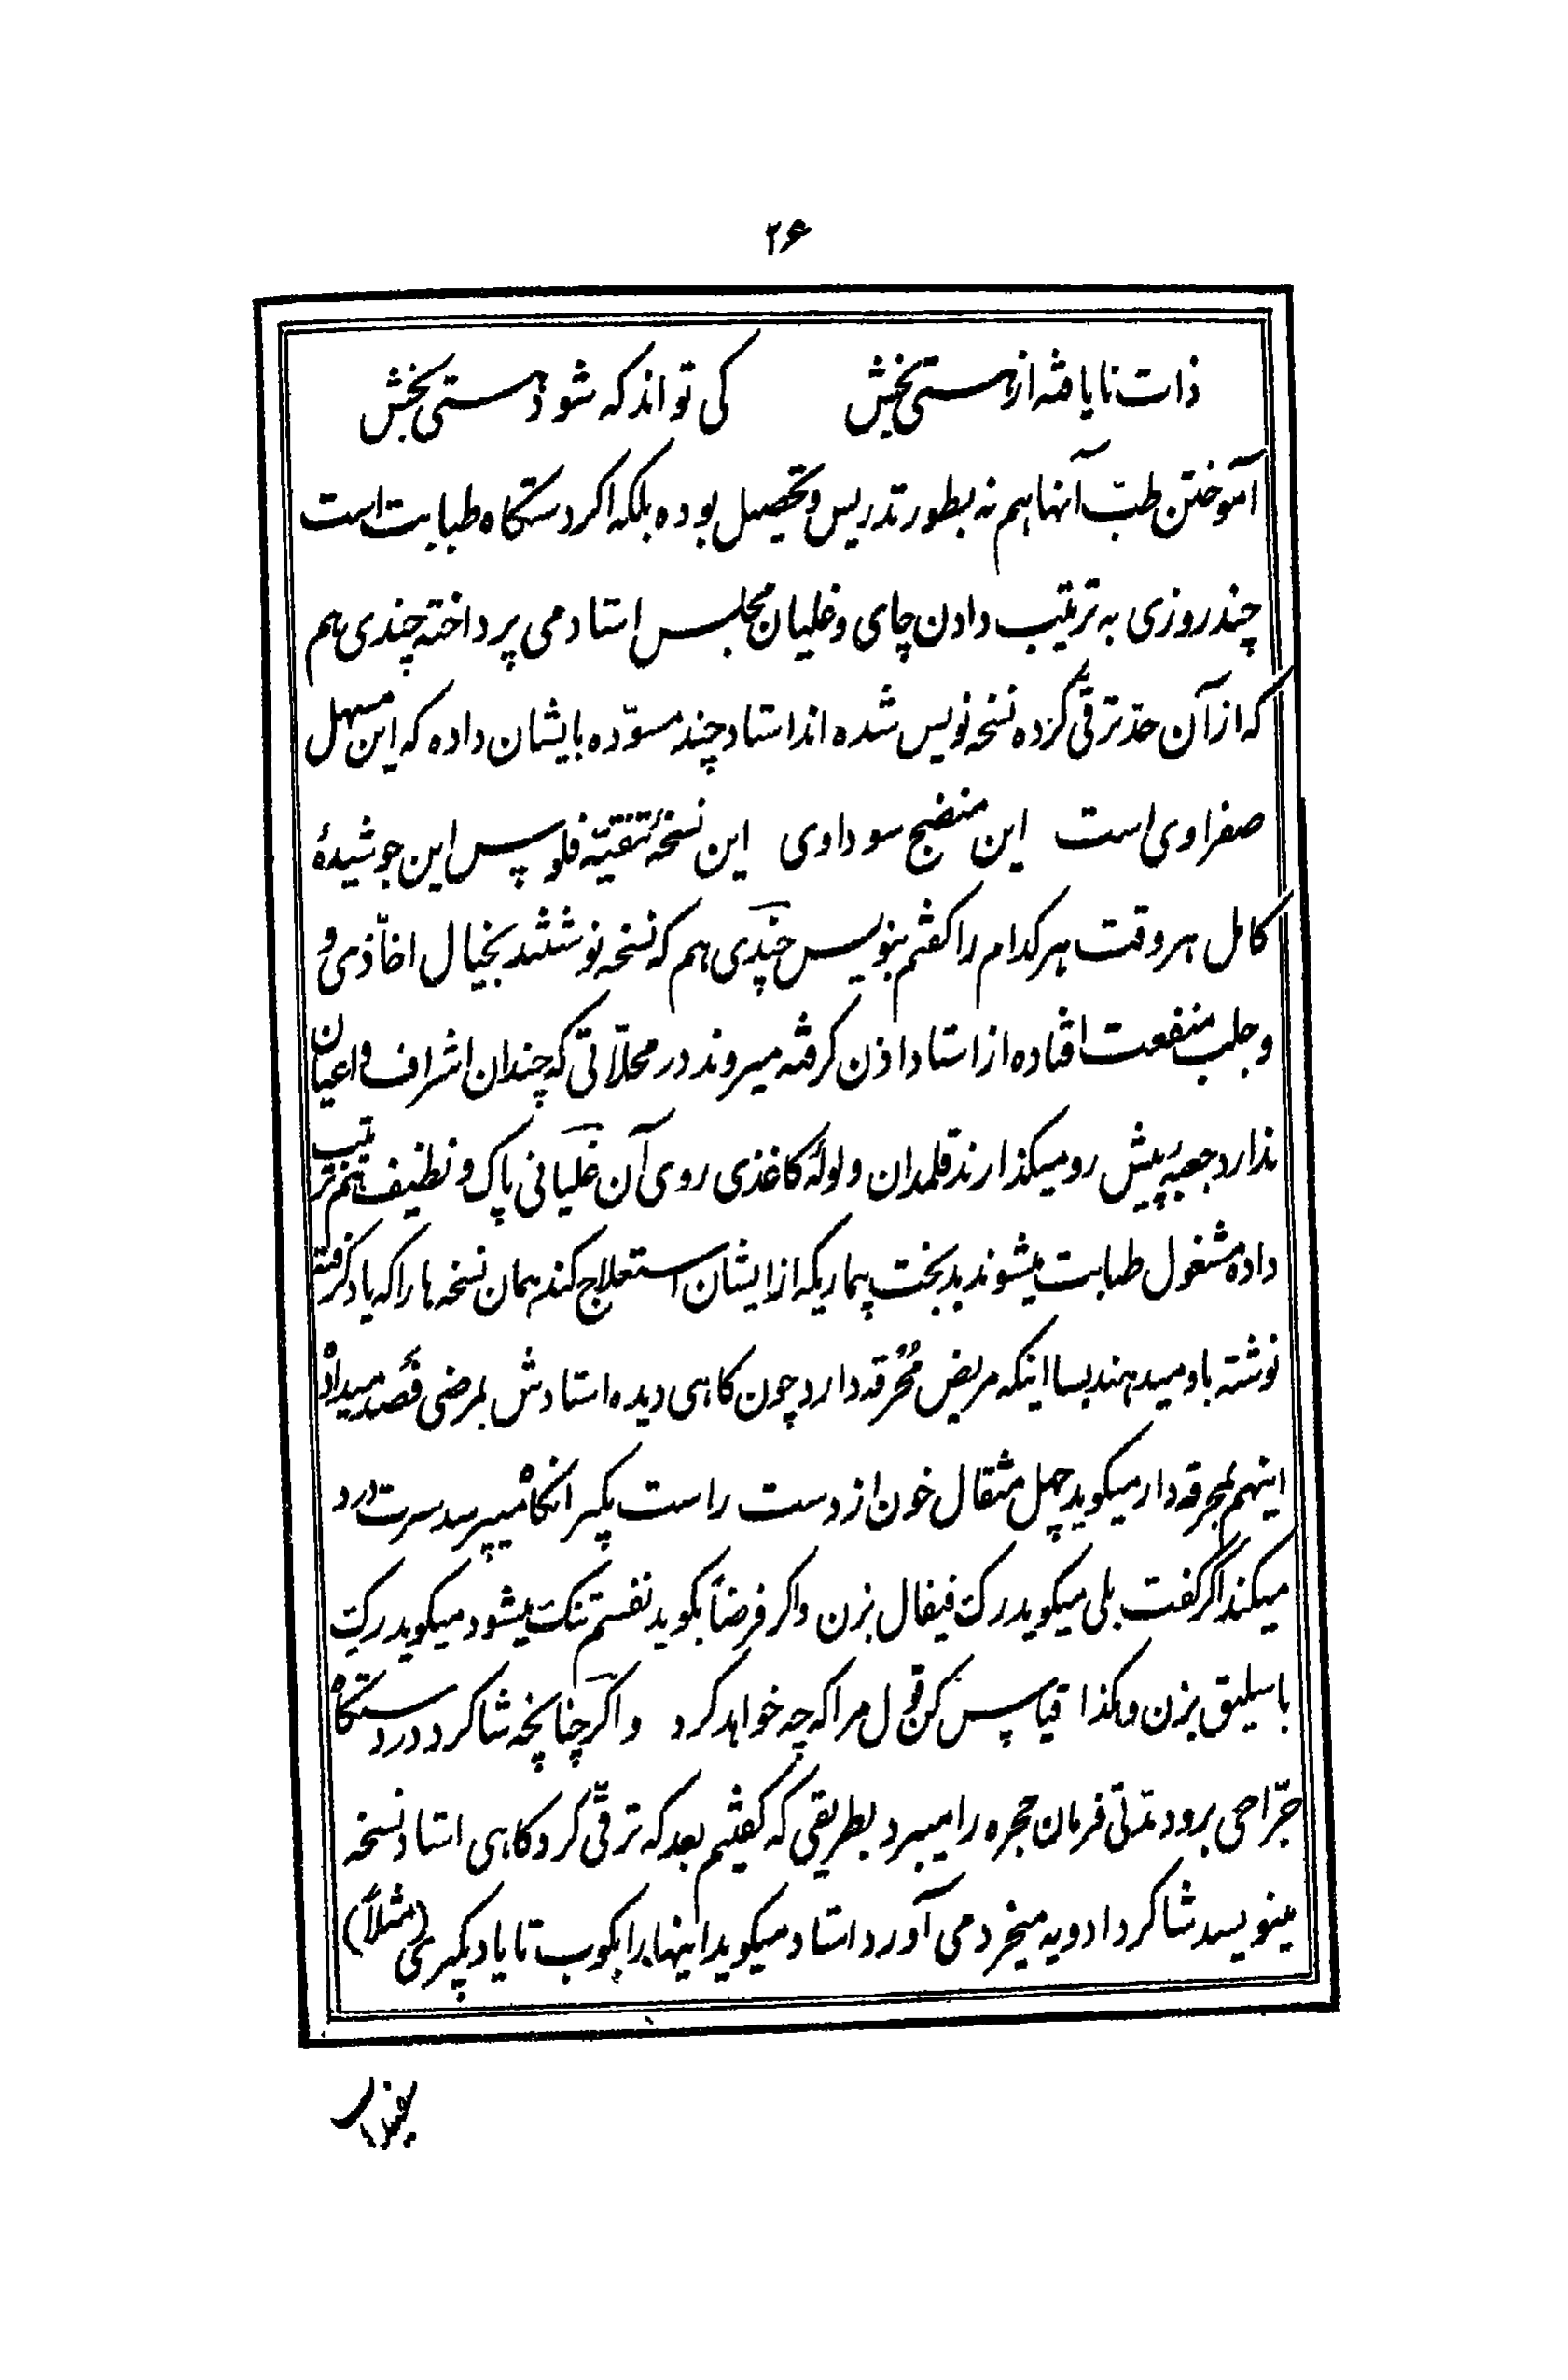 ۲۶
ذات نایافته از هستی بخش کی تواند که شود هستی بخش
آموختن طبّ آنها هم نه بطور تدریس و تحصیل بوده بلکه اکر دستکاه طبابت است
چند روزی به ترتیب دادن چای و غلیان مجلس استاد می پرداخته چندی هم
که از آن حدّ ترقّی کرده نسخه نویس شده اند استاد چند مسوّده بایشان داده که این مسهل
صفراوی است این منضج سوداوی این نسخهٔ تنقیهٔ فلوس این جوشیدهٔ
کامل هر وقت هر کدام را کفتم بنویس چندی هم که نسخه نوشتند بخیال اخّاذی و
و جلب منفعت افتاده از استاد اذن کرفته میروند در محلّاتی که چندان اشراف و اعیان
ندارد جعبه پیش رو میکذارند قلمدان و لولهٔ کاغذی روی آن غلیانی پاک و نظیف هم ترتیب
داده مشغول طبابت میشوند بدبخت بیماریکه از ایشان استعلاج کند همان نسخه ها را که یاد کرفته
نوشته باو میدهند بسا اینکه مریض مُحرقه دارد چون کاهی دیده استادش بمرضی فصد میداد
اینهم بمحرقه دار میکوید چهل مثقال خون از دست راست بکیر انکاه میپرسد سرت درد
میکند اگر گفت بلی میکوید رک قیفال بزن و اکر فرضاً بکوید نفسم تنک میشود میکوید رک
باسلیق بزن و هکذا قیاس کن قول مرا که چه خواهد کرد و اکر چنانچه شاکرد در دستکاه
جرّاحی برود مدّتی فرمان حجره را میبرد بطریقی که کفتیم بعد که ترقّی کرد کاهی استاد نسخه
مینویسد شاکرد ادویه میخرد می آورد استاد میکوید اینها را بکوب تا یاد بکیری (مثلاً)